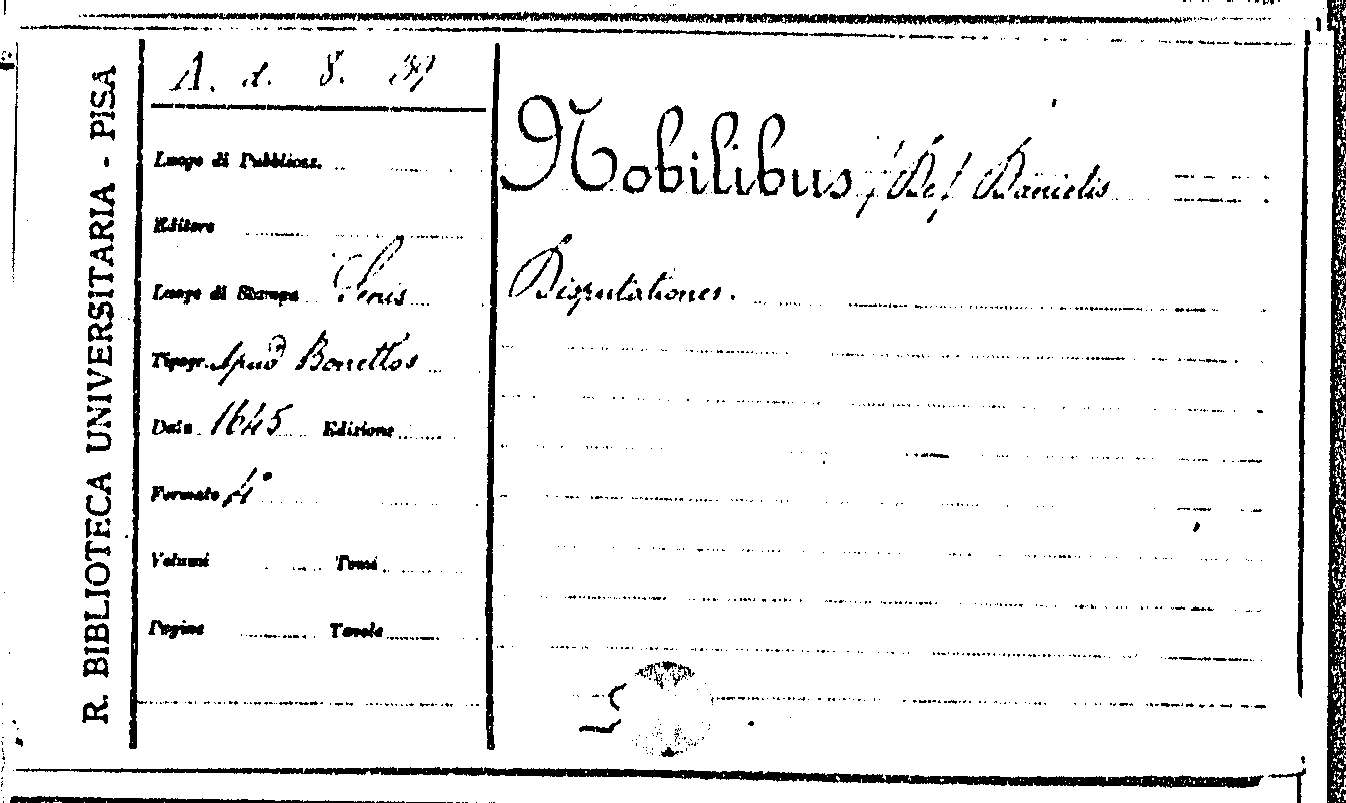 R. BIBLIOTECA UNIVERSITARIA - PISA
A. d. 8. 39
Luogo di Pubblicaz.
Editore
Luogo di Stampa Senis
Tipogr. Apud Bonettos
Data 1645 Edizione
Formato 4°
Volumi Tomi
Pagine Tavole
Nobilibus (De) Danielis
Disputationes.